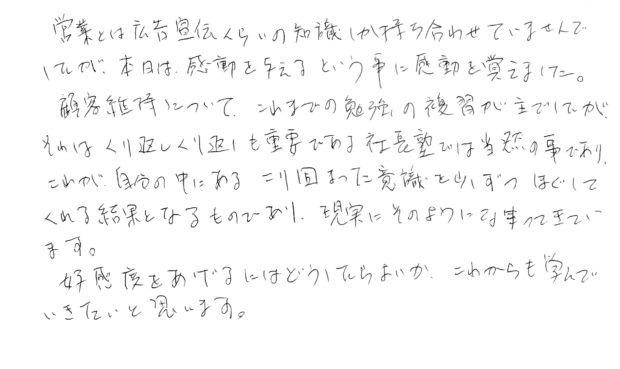 営業とは広告宣伝くらいの知識しか持ち合わせていませんで
したが、本日は、感動を与えるという事に感動を覚えました。
顧客維持について、これまでの勉強の復習が主でしたが、
それはくり返しくり返しも重要である社長塾では当然の事であり、
これが、自分の中にある こり固まった意識を少しずつ ほぐして
くれる結果となるものであり、現実にそのようになってきてい
ます。
好感度をあげるにはどうしたらよいか、これからも学んで
いきたいと思います。